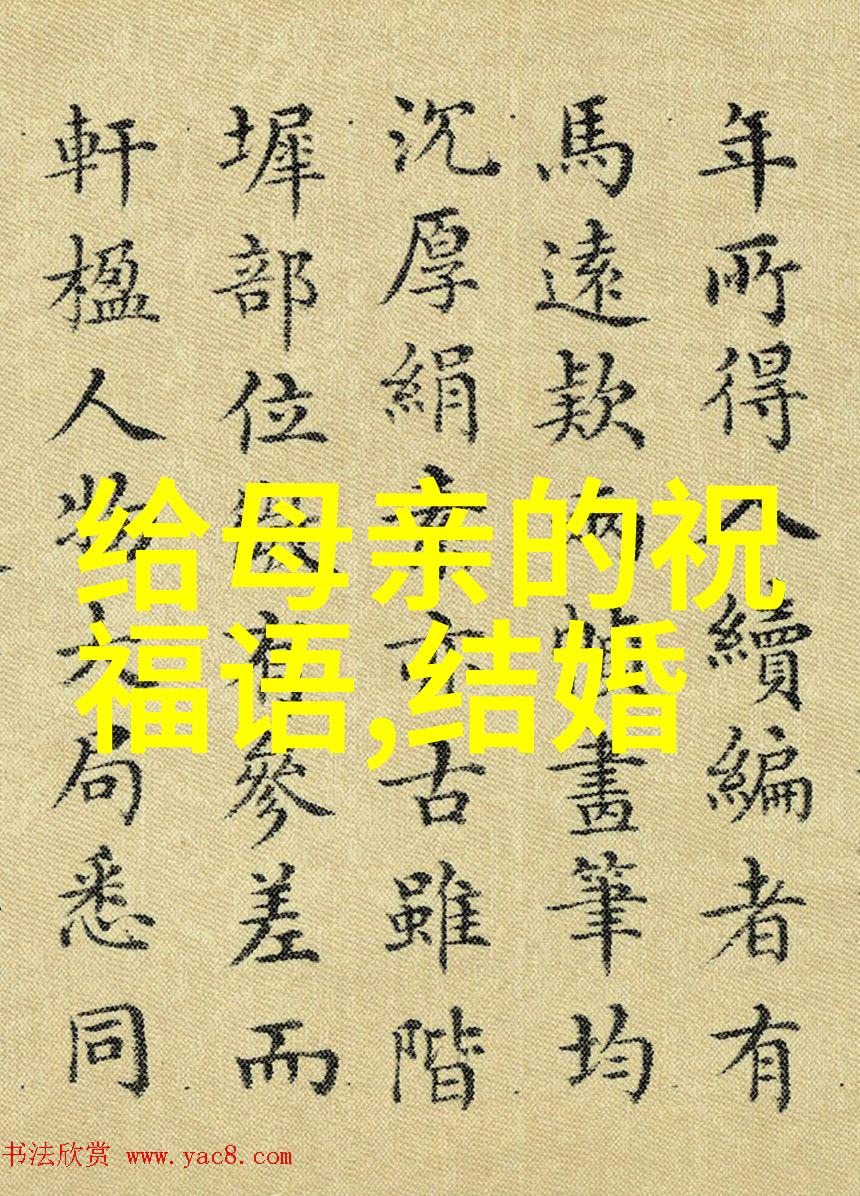 年所得入續編者有
馬遠欵兩幀畫筆均
沉厚絹素亦古雖階
墀部位微有參差而
軒楹人物大局悉同
给母亲的祝
福语,结婚
书法欣赏 www.yac8.com